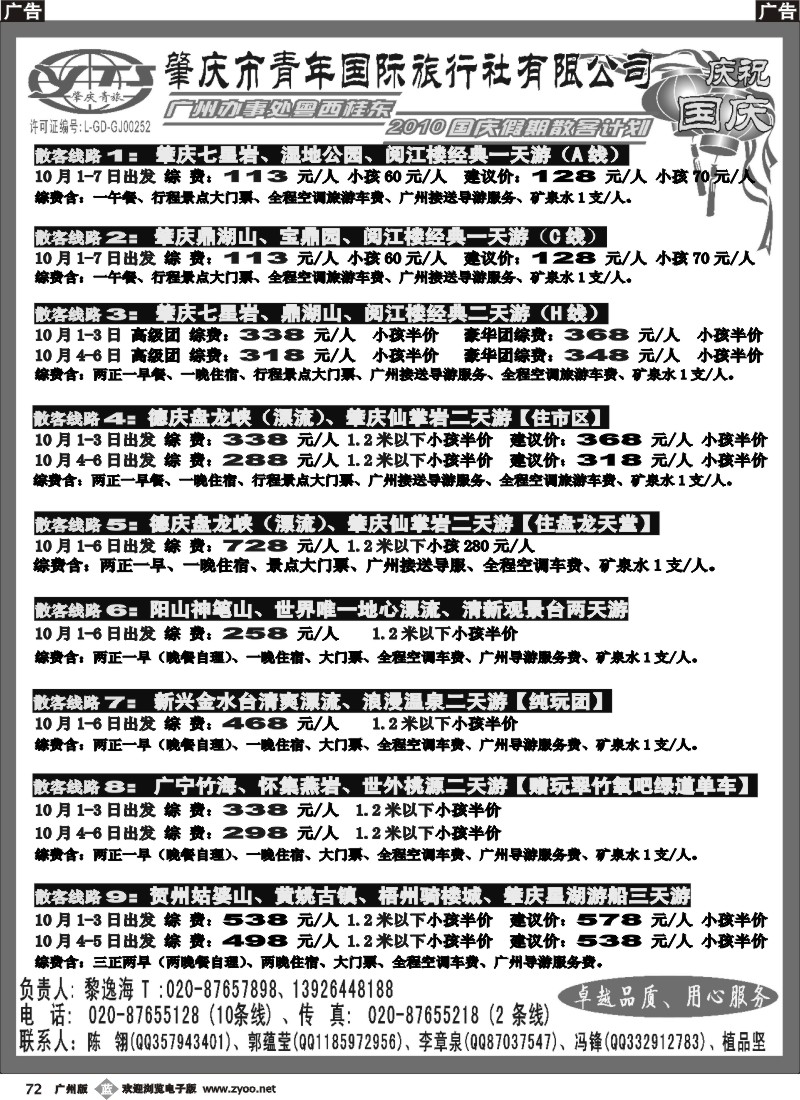 广告
广告
YTS
肇庆青旅
许可证编号:L-GD-GJ00252
肇庆市青年国际旅行社有限公司
广州办事处粤西桂东
2010国庆假期散客计划
庆祝
国庆
散客线路1：肇庆七星岩、湿地公园、阅江楼经典一天游（A线）
10月1-7日出发 综 费：113 元/人 小孩60元/人 建议价：128 元/人 小孩70元/人
综费含：一午餐、行程景点大门票、全程空调旅游车费、广州接送导游服务、矿泉水1支/人。
散客线路2：肇庆鼎湖山、宝鼎园、阅江楼经典一天游（C线）
10月1-7日出发 综 费：113 元/人 小孩60元/人 建议价：128 元/人 小孩70元/人
综费含：一午餐、行程景点大门票、全程空调旅游车费、广州接送导游服务、矿泉水1支/人。
散客线路3：肇庆七星岩、鼎湖山、阅江楼经典二天游（H线）
10月1-3日 高级团 综费：338 元/人 小孩半价 豪华团综费：368 元/人 小孩半价
10月4-6日 高级团 综费：318 元/人 小孩半价 豪华团综费：348 元/人 小孩半价
综费含：两正一早餐、一晚住宿、行程景点大门票、广州接送导游服务、全程空调旅游车费、矿泉水1支/人。
散客线路4：德庆盘龙峡（漂流）、肇庆仙掌岩二天游【住市区】
10月1-3日出发 综 费：338 元/人 1.2米以下小孩半价 建议价：368 元/人 小孩半价
10月4-6日出发 综 费：288 元/人 1.2米以下小孩半价 建议价：318 元/人 小孩半价
综费含：两正一早餐、一晚住宿、行程景点大门票、广州接送导游服务、全程空调旅游车费、矿泉水1支/人。
散客线路5：德庆盘龙峡（漂流）、肇庆仙掌岩二天游【住盘龙天堂】
10月1-6日出发 综 费：728 元/人 1.2米以下小孩280元/人
综费含：两正一早、一晚住宿、景点大门票、广州接送导服、全程空调车费、矿泉水1支/人。
散客线路6：阳山神笔山、世界唯一地心漂流、清新观景台两天游
10月1-6日出发 综 费：258 元/人 1.2米以下小孩半价
综费含：两正一早（晚餐自理）、一晚住宿、大门票、全程空调车费、广州导游服务费、矿泉水1支/人。
散客线路7：新兴金水台清爽漂流、浪漫温泉二天游【纯玩团】
10月1-6日出发 综 费：468 元/人 1.2米以下小孩半价
综费含：两正一早（晚餐自理）、一晚住宿、大门票、全程空调车费、广州导游服务费、矿泉水1支/人。
散客线路8：广宁竹海、怀集燕岩、世外桃源二天游【赠玩翠竹氧吧绿道单车】
10月1-3日出发 综 费：338 元/人 1.2米以下小孩半价
10月4-6日出发 综 费：298 元/人 1.2米以下小孩半价
综费含：两正一早（晚餐自理）、一晚住宿、大门票、全程空调车费、广州导游服务费、矿泉水1支/人。
散客线路9：贺州姑婆山、黄姚古镇、梧州骑楼城、肇庆星湖游船三天游
10月1-3日出发 综 费：538 元/人 1.2米以下小孩半价 建议价：578 元/人 小孩半价
10月4-5日出发 综 费：498 元/人 1.2米以下小孩半价 建议价：538 元/人 小孩半价
综费含：三正两早（两晚餐自理）、两晚住宿、大门票、全程空调车费、广州导游服务费。
负责人：黎逸海 T :020-87657898、13926448188
电 话：020-87655128 (10条线) 、传 真：020-87655218 (2 条线)
卓越品质、用心服务
联系人：陈 翎(QQ357943401)、郭蕴莹(QQ1185972956)、李章泉(QQ87037547)、冯锋(QQ332912783)、植品坚
72 广州版 蓝 欢迎浏览电子版 www.zyoo.net